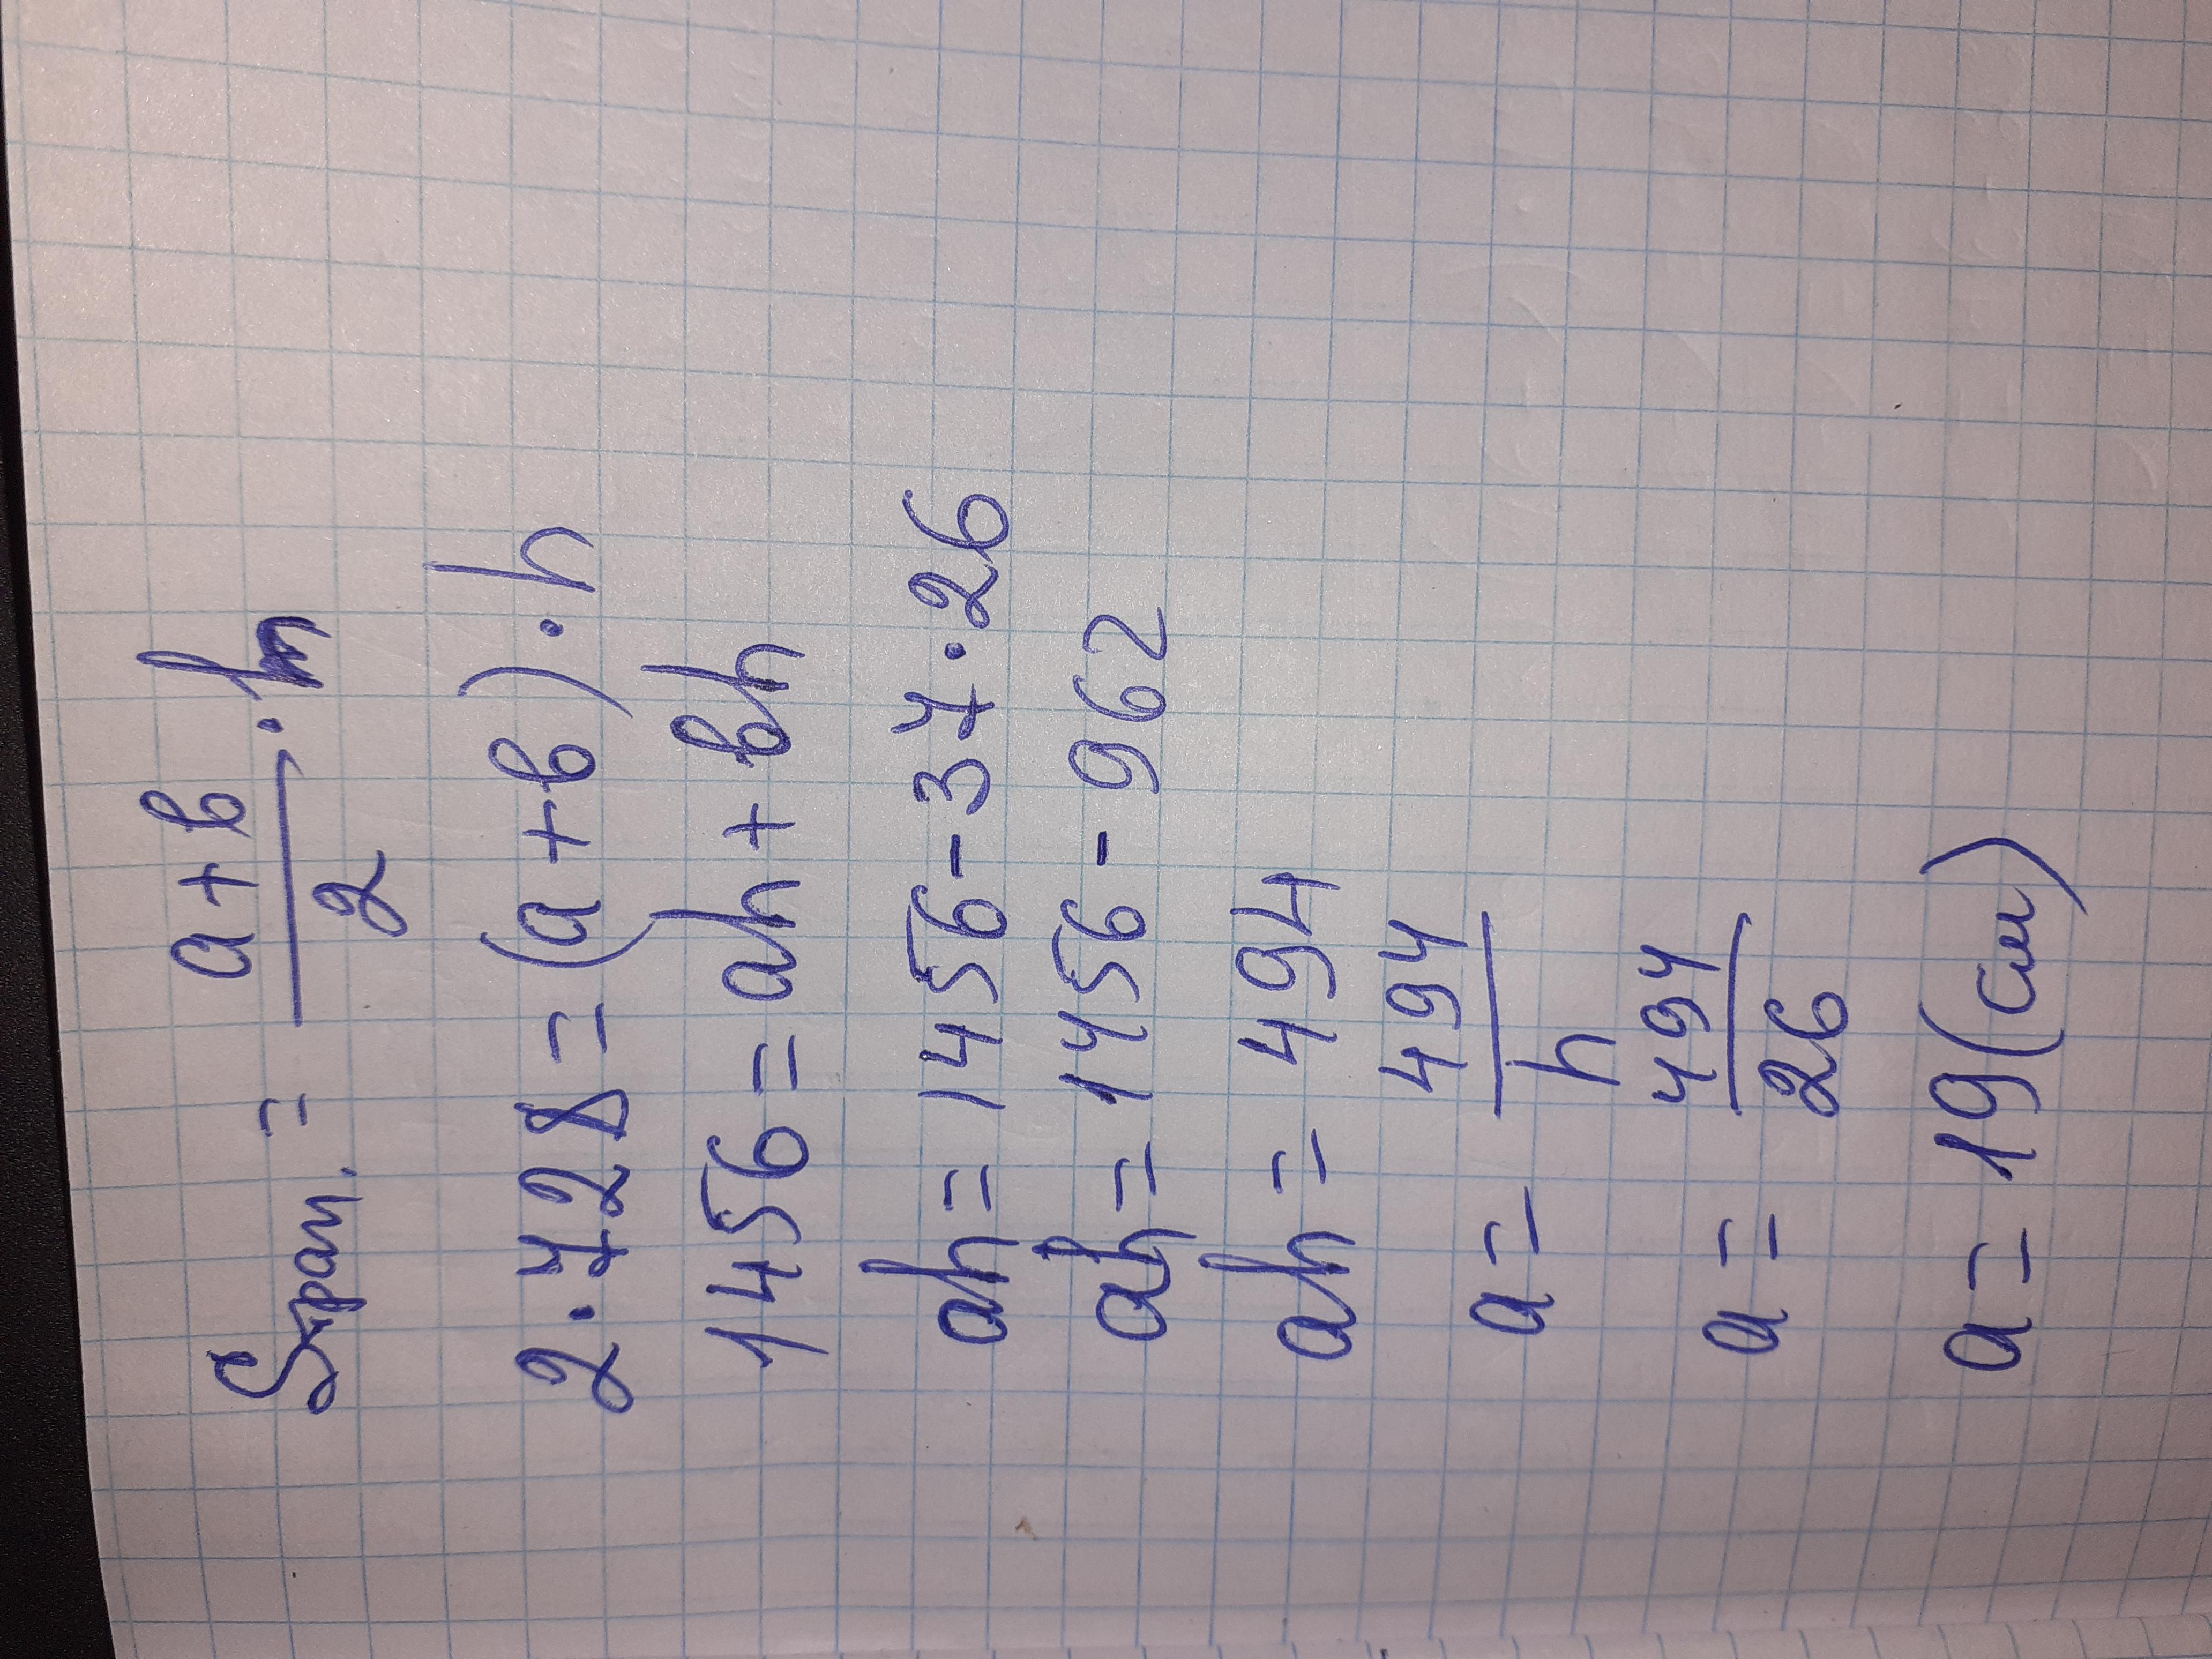 Sтрап. = a+в/2 · h
2·728=(a+в)·h
1456=ah+вh
ah=1456-37·26
ah=1456-962
ah= 494
a= 494/h
a= 494/26
a=19(см)